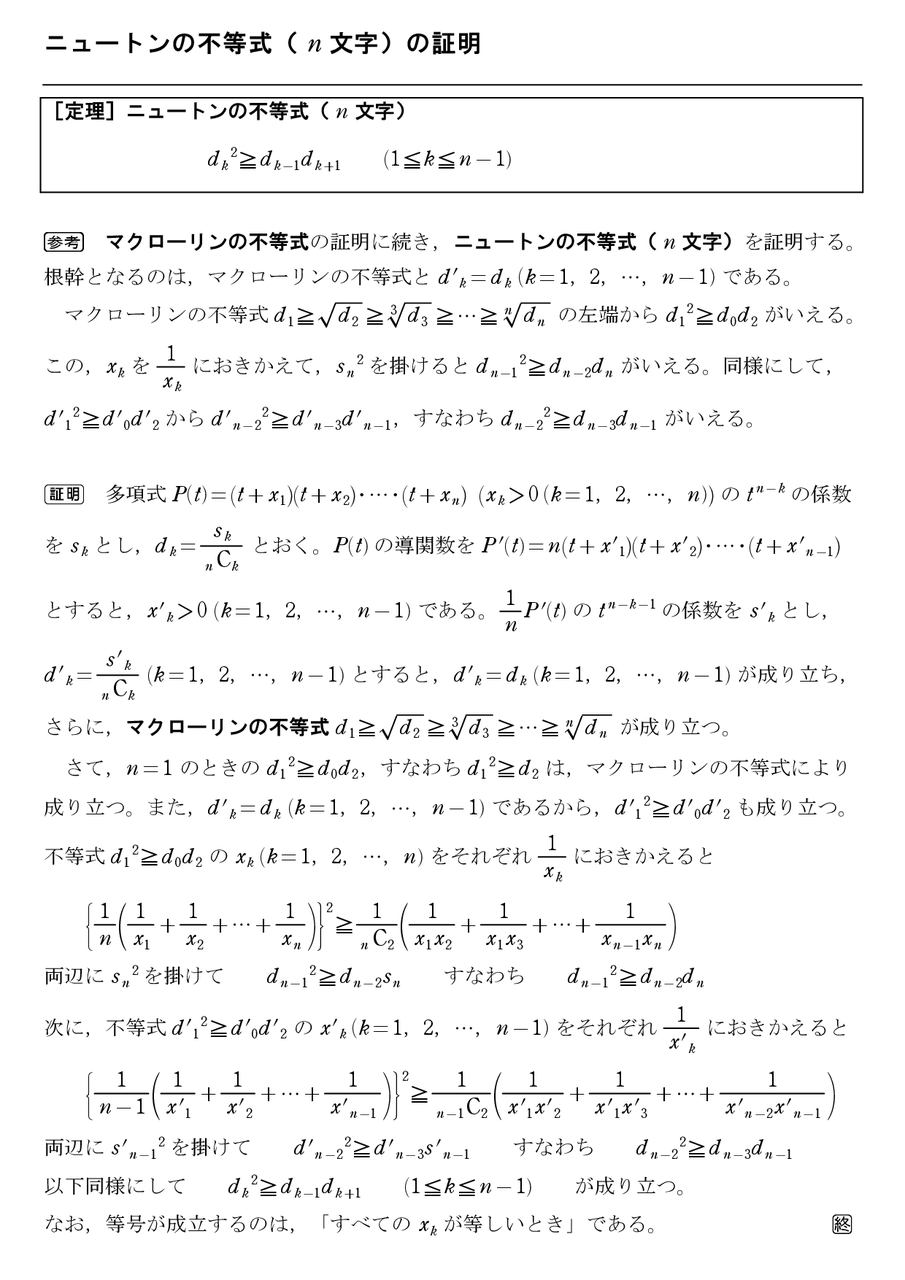 ニュートンの不等式（ n 文字）の証明
［定理］ニュートンの不等式（ n 文字）
d_k^2≧d_{k−1}d_{k+1}　　(1≦k≦n−1)
参考　マクローリンの不等式の証明に続き，ニュートンの不等式（ n 文字）を証明する。
根幹となるのは，マクローリンの不等式と d′_k=d_k (k=1，2，…，n−1) である。
マクローリンの不等式 d_1≧√d_2≧∛d_3≧…≧ⁿ√d_n の左端から d_1^2≧d_0d_2 がいえる。
この，x_k を 1/x_k におきかえて，s_n^2 を掛けると d_{n−1}^2≧d_{n−2}d_n がいえる。同様にして，
d′_1^2≧d′_0d′_2 から d′_{n−2}^2≧d′_{n−3}d′_{n−1}，すなわち d_{n−2}^2≧d_{n−3}d_{n−1} がいえる。
証明　多項式 P(t)=(t+x_1)(t+x_2)・…・(t+x_n) (x_k>0 (k=1，2，…，n)) の t^{n−k} の係数
を s_k とし，d_k=s_k/_nC_k とおく。P(t) の導関数を P′(t)=n(t+x′_1)(t+x′_2)・…・(t+x′_{n−1})
とすると，x′_k>0 (k=1，2，…，n−1) である。1/n P′(t) の t^{n−k−1} の係数を s′_k とし，
d′_k=s′_k/_nC_k (k=1，2，…，n−1) とすると，d′_k=d_k (k=1，2，…，n−1) が成り立ち，
さらに，マクローリンの不等式 d_1≧√d_2≧∛d_3≧…≧ⁿ√d_n が成り立つ。
さて，n=1 のときの d_1^2≧d_0d_2，すなわち d_1^2≧d_2 は，マクローリンの不等式により
成り立つ。また，d′_k=d_k (k=1，2，…，n−1) であるから，d′_1^2≧d′_0d′_2 も成り立つ。
不等式 d_1^2≧d_0d_2 の x_k (k=1，2，…，n) をそれぞれ 1/x_k におきかえると
{1/n(1/x_1+1/x_2+…+1/x_n)}^2≧1/_nC_2(1/x_1x_2+1/x_1x_3+…+1/x_{n−1}x_n)
両辺に s_n^2 を掛けて　　d_{n−1}^2≧d_{n−2}s_n　　すなわち　　d_{n−1}^2≧d_{n−2}d_n
次に，不等式 d′_1^2≧d′_0d′_2 の x′_k (k=1，2，…，n−1) をそれぞれ 1/x′_k におきかえると
{1/(n−1)(1/x′_1+1/x′_2+…+1/x′_{n−1})}^2≧1/_{n−1}C_2(1/x′_1x′_2+1/x′_1x′_3+…+1/x′_{n−2}x′_{n−1})
両辺に s′_{n−1}^2 を掛けて　　d′_{n−2}^2≧d′_{n−3}s′_{n−1}　　すなわち　　d_{n−2}^2≧d_{n−3}d_{n−1}
以下同様にして　　d_k^2≧d_{k−1}d_{k+1}　　(1≦k≦n−1)　　が成り立つ。
なお，等号が成立するのは，「すべての x_k が等しいとき」である。　終